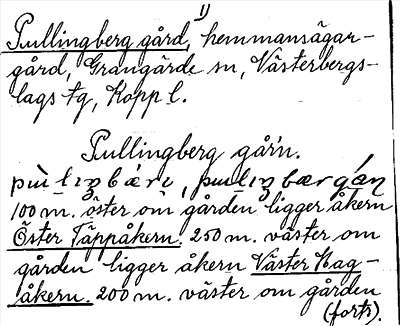 1)
Pullingberg gård, hemmansägar-
gård, Grangärde sn, Västerbergs-
lags tg, Kopp l.
Pullingberg gårn.
100 m. öster om gården ligger åkern
Öster Täppåkern. 250 m. väster om
gården ligger åkern Väster Hag-
åkern. 200 m. väster om gården
(forts).